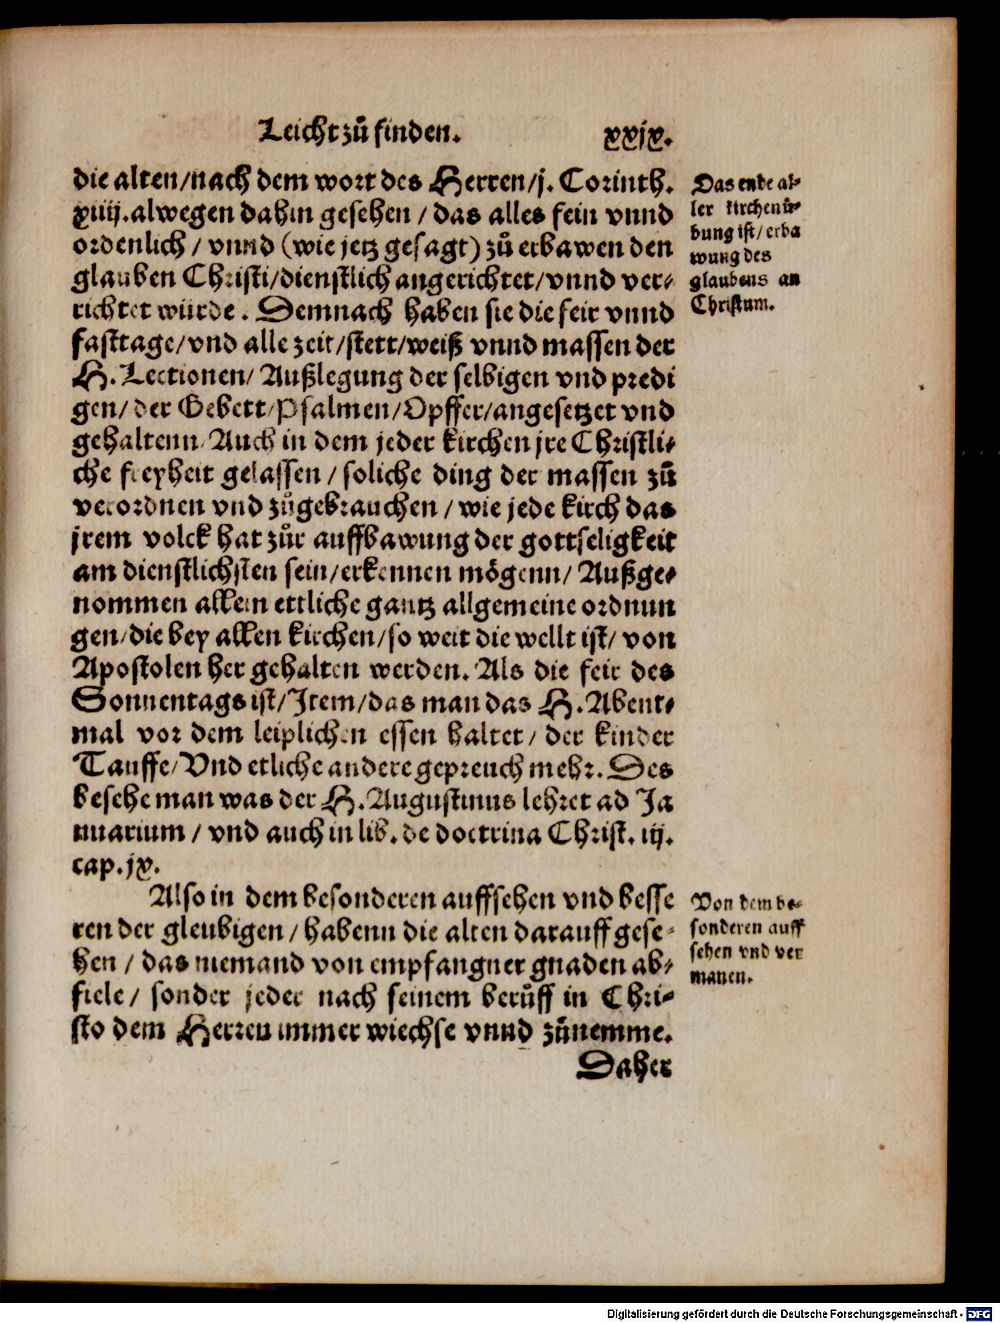 Leicht zů finden. xxjx.
die alten/nach dem wort des Herren/j. Corinth.
xiiij. alwegen dahin gesehen / das alles fein vnnd
ordenlich / vnnd (wie jetz gesagt) zů erbawen den
glauben Christi/dienstlich angerichtet/vnnd ver-
richtet würde. Demnach haben sie die feir vnnd
fasttage/vnd alle zeit/stett/weiß vnnd massen der
H. Lectionen/ Außlegung der selbigen vnd predi
gen/ der Gebett/Psalmen/Opffer/angesetzet vnd
gehaltenn/Auch in dem jeder kirchen jre Christli-
che freyheit gelassen / soliche ding der massen zů
verordnen vnd zůgebrauchen / wie jede kirch das
jrem volck hat zůr auffbawung der gottseligkeit
am dienstlichsten sein/erkennen mögenn/ Außge-
nommen allein ettliche gantz allgemeine ordnun
gen/die bey allen kirchen/so weit die wellt ist/ von
Apostolen her gehalten werden. Als die feir des
Sonnentags ist/Item/das man das H. Abent-
mal vor dem leiplichen essen haltet/ der kinder
Tauffe/Vnd etliche andere gepreuch mehr. Des
besehe man was der H. Augustinus lehret ad Ja
nuarium / vnd auch in lib. de doctrina Christ. iij.
cap. jx.
Also in dem besonderen auffsehen vnd besse
ren der gleubigen / habenn die alten darauff gese-
hen / das niemand von empfangner gnaden ab-
fiele / sonder jeder nach seinem berůff in Chri-
sto dem Herren immer wiechse vnnd zůnemme.
Daher
Das ende al-
ler kirchenü-
bung ist/ erba
wung des
glaubens an
Christum.
Von dem be-
sonderen auff
sehen vnd ver
manen.
Digitalisierung gefördert durch die Deutsche Forschungsgemeinschaft - DFG